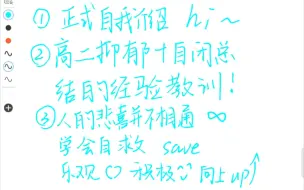 ① 正式自我介绍 hi~
② 高二抑郁十自闭总
结的经验教训!
③ 人的悲喜并不相通 ∞
学会自救 save
乐观 积极 向上 up↑